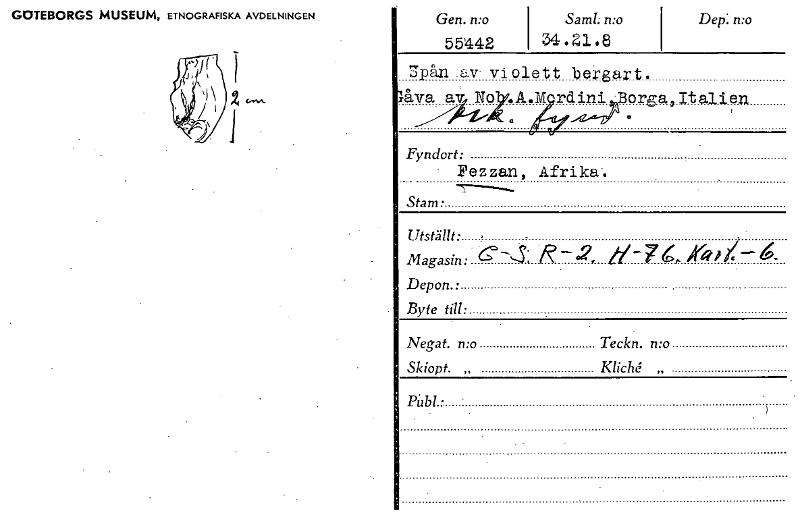 GÖTEBORGS MUSEUM, ETNOGRAFISKA AVDELNINGEN
2 cm
Gen. n:o Saml. n:o Dep. n:o
55442 34.21.8
Spån av violett bergart.
Gåva av Nob.A.Mordini,Borga,Italien
Ark. fynd.
Fyndort:
Fezzan, Afrika.
Stam:
Utställt:
Magasin: G-S. R-2. H-76. Kart.-6.
Depon.:
Byte till:
Negat. n:o Teckn. n:o
Skiopt. „ Kliché „
Publ.: